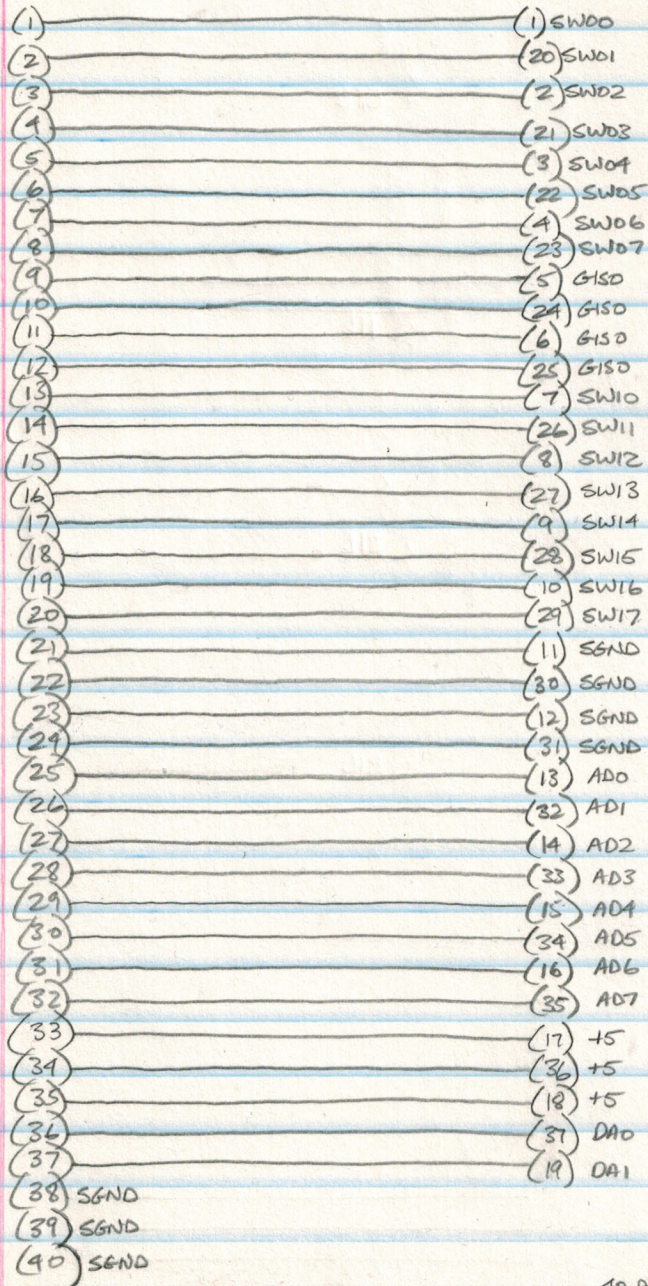 (1) (1) SW00
(2) (20) SW01
(3) (2) SW02
(4) (21) SW03
(5) (3) SW04
(6) (22) SW05
(7) (4) SW06
(8) (23) SW07
(9) (5) GISO
(10) (24) GISO
(11) (6) GISO
(12) (25) GISO
(13) (7) SW10
(14) (26) SW11
(15) (8) SW12
(16) (27) SW13
(17) (9) SW14
(18) (28) SW15
(19) (10) SW16
(20) (29) SW17
(21) (11) SGND
(22) (30) SGND
(23) (12) SGND
(24) (31) SGND
(25) (13) AD0
(26) (32) AD1
(27) (14) AD2
(28) (33) AD3
(29) (15) AD4
(30) (34) AD5
(31) (16) AD6
(32) (35) AD7
(33) (17) +5
(34) (36) +5
(35) (18) +5
(36) (37) DA0
(37) (19) DA1
(38) SGND
(39) SGND
(40) SGND